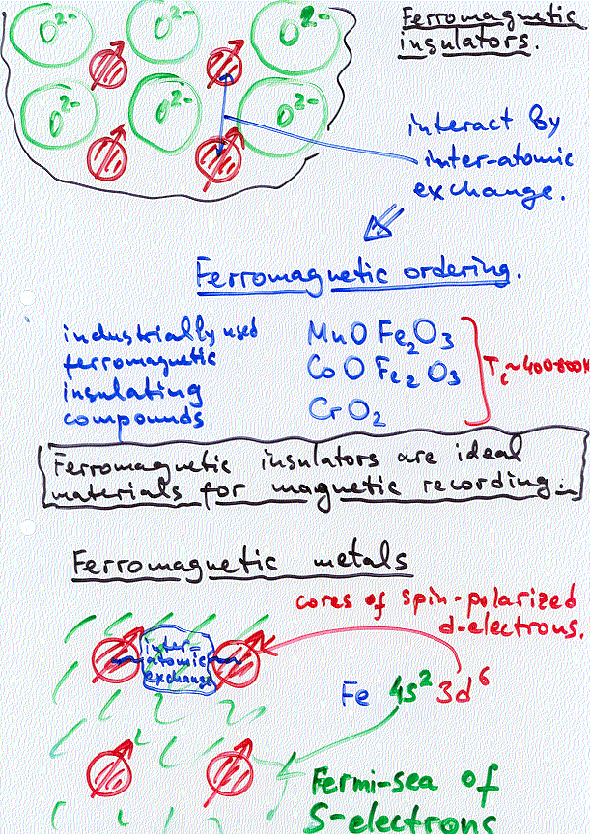 Ferromagnetic
insulators.
O²⁻ O²⁻ O²⁻
O²⁻ O²⁻ O²⁻
interact by
inter-atomic
exchange.
Ferromagnetic ordering.
industrially used
ferromagnetic
insulating
compounds
MnO Fe₂O₃
CoO Fe₂O₃
CrO₂
T_c ~ 400-800K
Ferromagnetic insulators are ideal
materials for magnetic recording.
Ferromagnetic metals
cores of spin-polarized
d-electrons.
inter-
atomic
exchange
Fe 4s² 3d⁶
Fermi-sea of
S-electrons